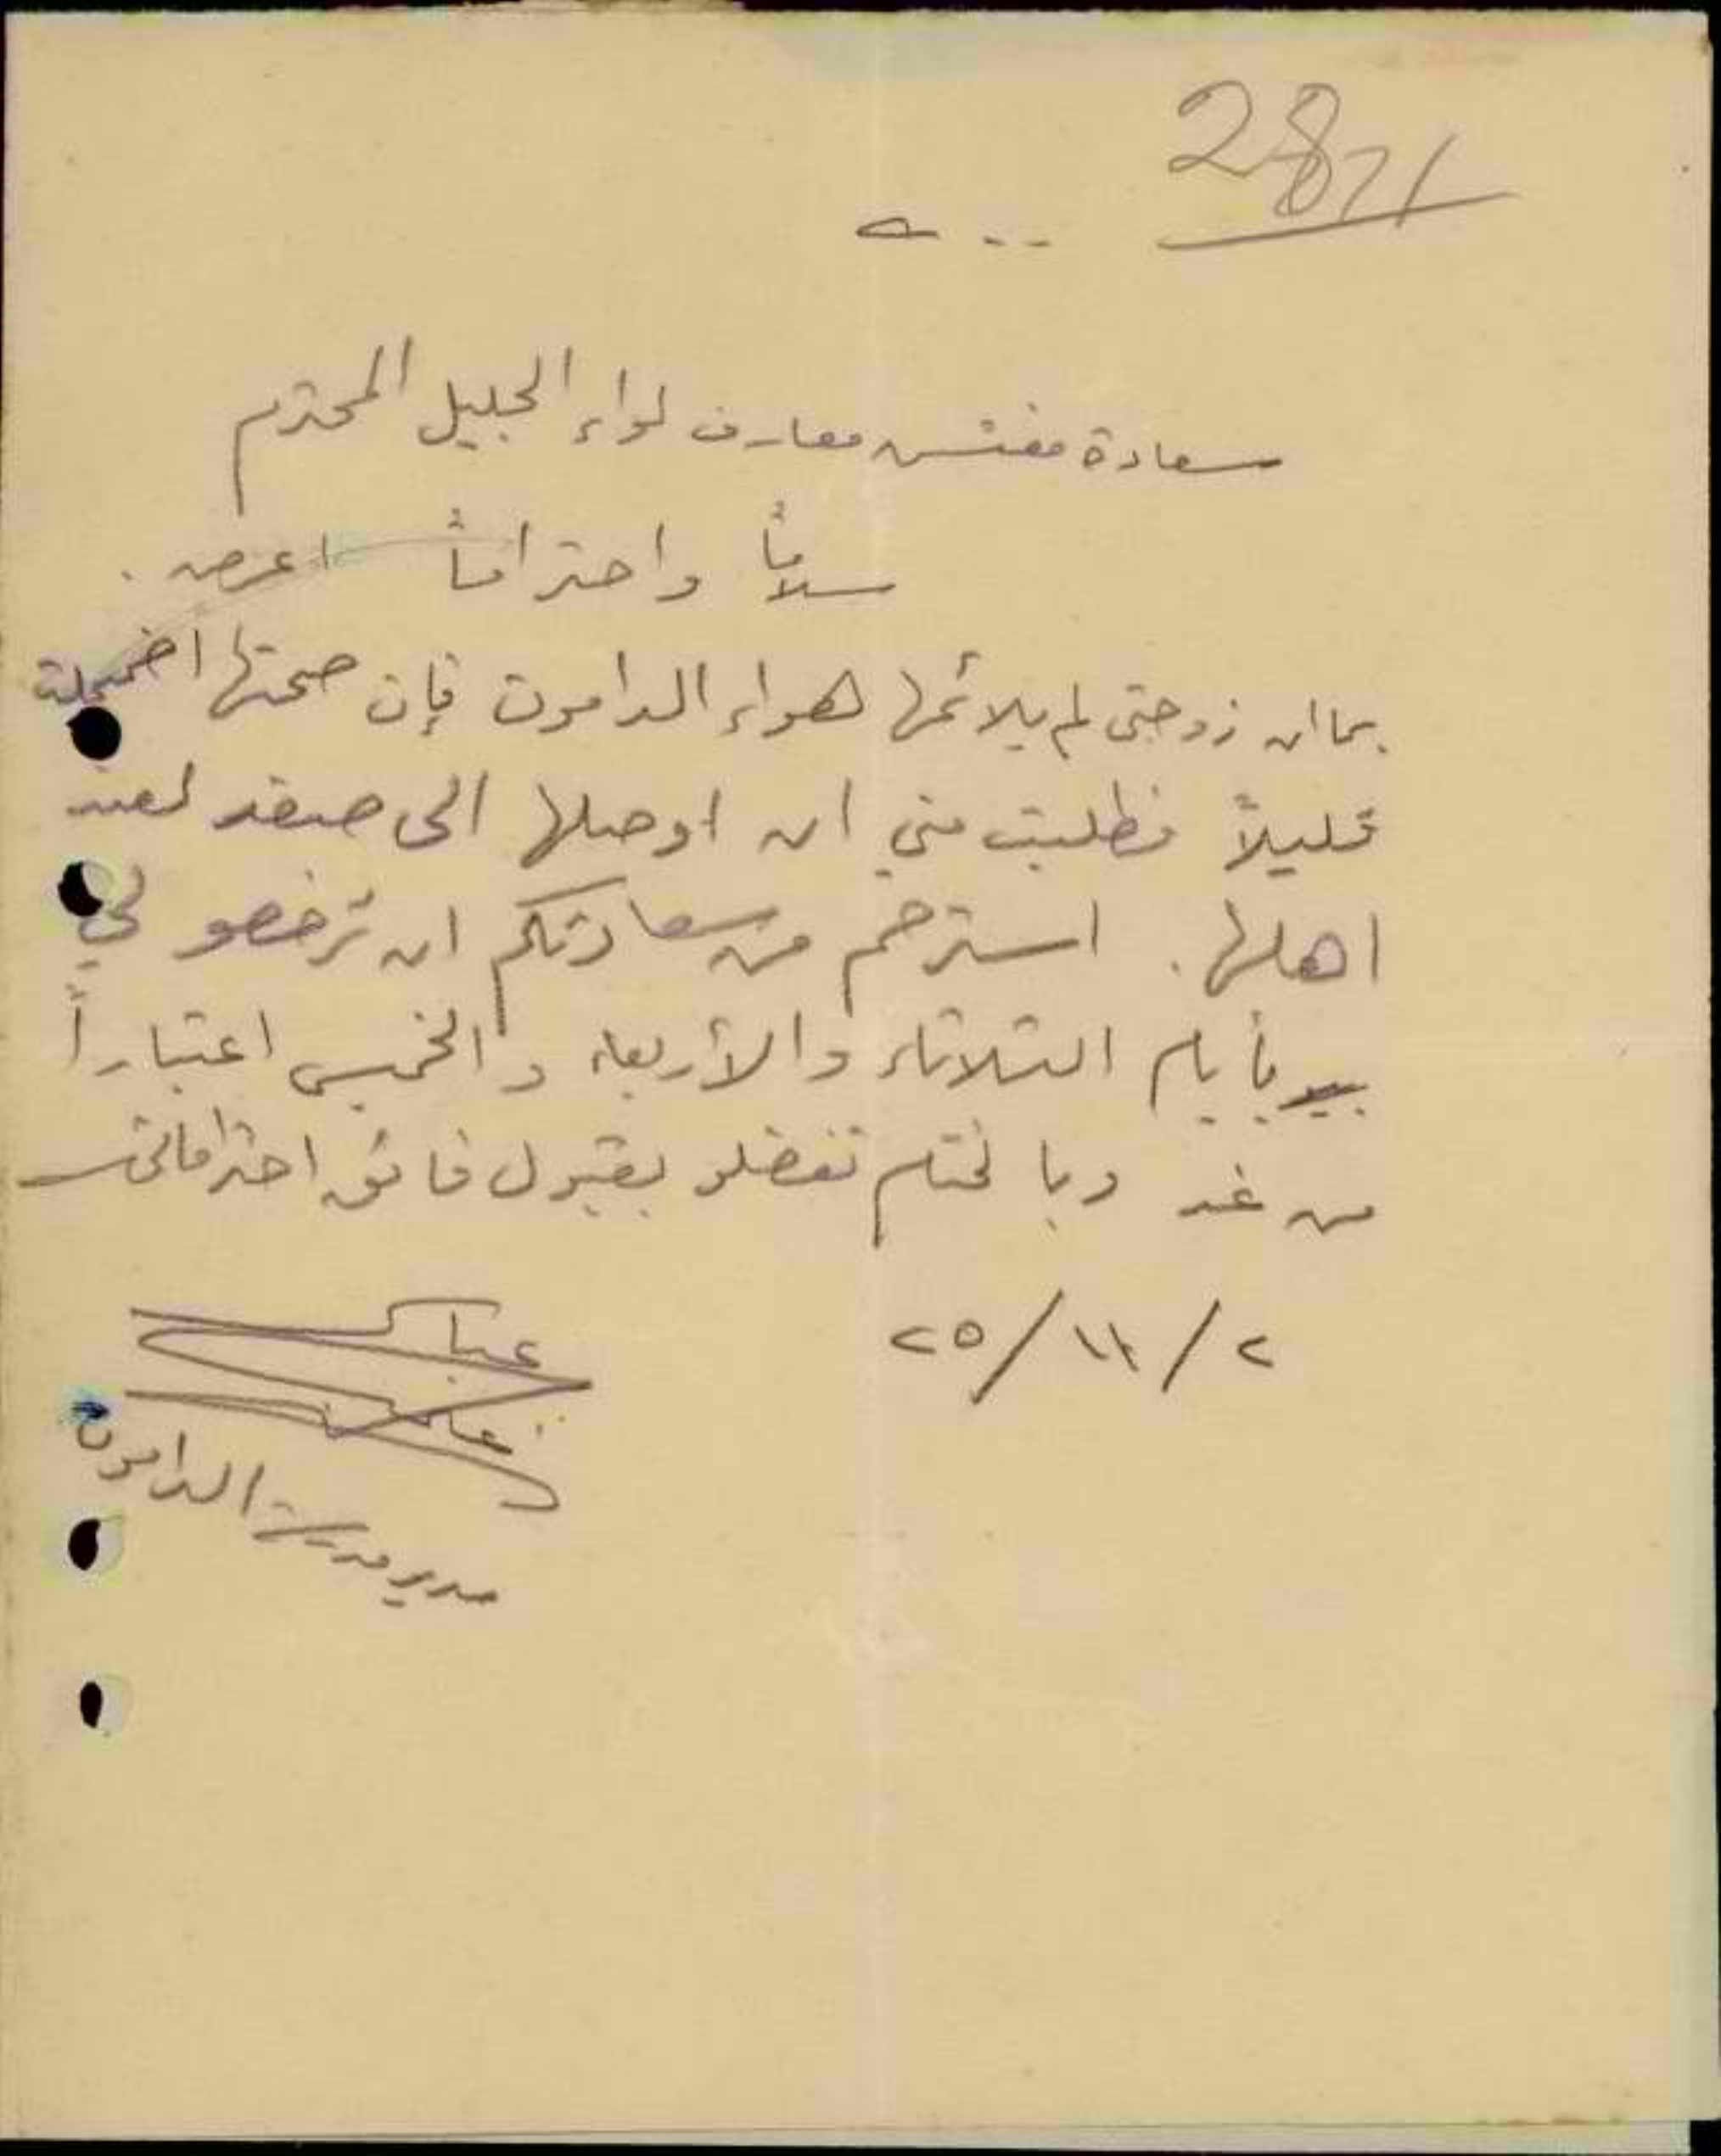 28
سعادة مفتش معارف لواء الجليل المحترم
سلاماً واحتراماً اعرض .
بما ان زوجتي لم يلائمها هواء الدامون فإن صحتها اضمحلت
قليلاً فطلبت مني ان اوصلها الى صفد لعند
اهلها . استرحم من سعادتكم ان ترخصو لي
بأيام الثلاثاء والأربعاء والخميس اعتباراً
من غد وبالختام تفضلو بقبول فائق احتراماتي
٢ / ١١ / ٢٥
عباس
مدير مدرسة الدامون